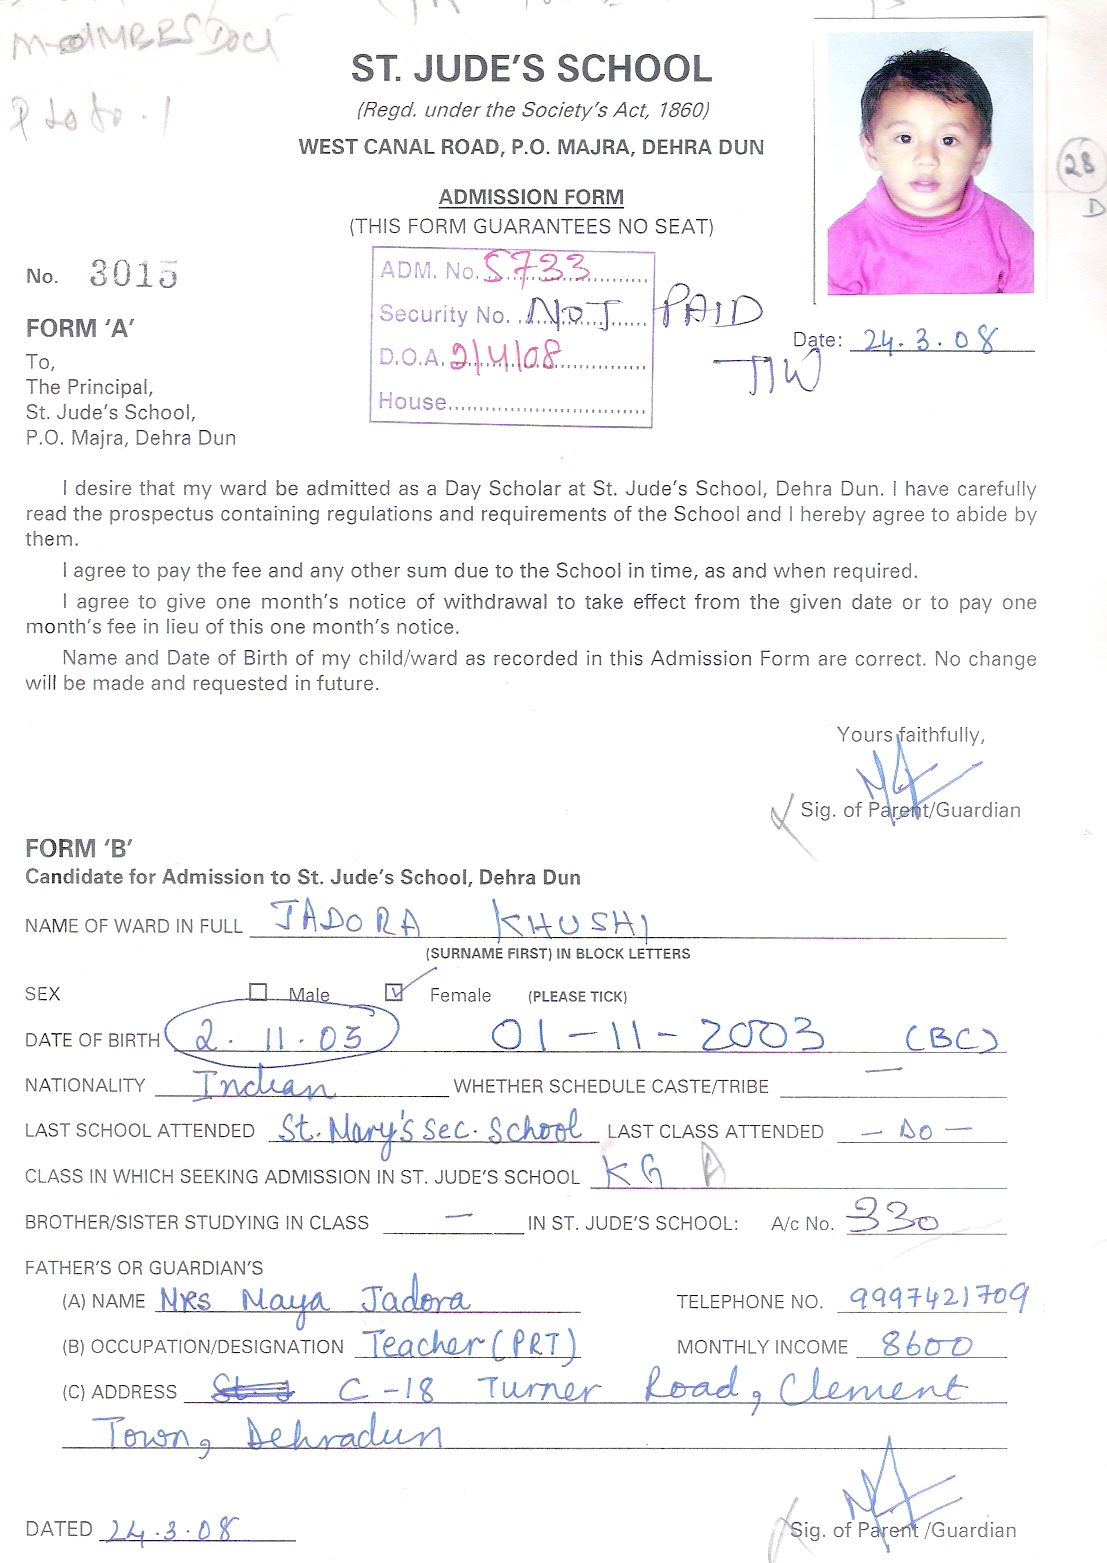 ST. JUDE'S SCHOOL
(Regd. under the Society's Act, 1860)
WEST CANAL ROAD, P.O. MAJRA, DEHRA DUN
28
D
ADMISSION FORM
(THIS FORM GUARANTEES NO SEAT)
No. 3015
ADM. No. 5733
Security No. NOT PAID
D.O.A. 2/4/08
House
FORM 'A'
Date: 24.3.08
To,
The Principal,
St. Jude's School,
P.O. Majra, Dehra Dun
I desire that my ward be admitted as a Day Scholar at St. Jude's School, Dehra Dun. I have carefully
read the prospectus containing regulations and requirements of the School and I hereby agree to abide by
them.
I agree to pay the fee and any other sum due to the School in time, as and when required.
I agree to give one month's notice of withdrawal to take effect from the given date or to pay one
month's fee in lieu of this one month's notice.
Name and Date of Birth of my child/ward as recorded in this Admission Form are correct. No change
will be made and requested in future.
Yours faithfully,
Sig. of Parent/Guardian
FORM 'B'
Candidate for Admission to St. Jude's School, Dehra Dun
NAME OF WARD IN FULL JADORA KHUSHI
(SURNAME FIRST) IN BLOCK LETTERS
SEX Male Female (PLEASE TICK)
DATE OF BIRTH 2.11.03 01-11-2003 (BC)
NATIONALITY Indian WHETHER SCHEDULE CASTE/TRIBE —
LAST SCHOOL ATTENDED St. Mary's Sec. School LAST CLASS ATTENDED - DO -
CLASS IN WHICH SEEKING ADMISSION IN ST. JUDE'S SCHOOL KG A
BROTHER/SISTER STUDYING IN CLASS — IN ST. JUDE'S SCHOOL: A/c No. 330
FATHER'S OR GUARDIAN'S
(A) NAME Mrs Maya Jadora TELEPHONE NO. 9997421709
(B) OCCUPATION/DESIGNATION Teacher (PRT) MONTHLY INCOME 8600
(C) ADDRESS C-18 Turner Road, Clement
Town, Dehradun
DATED 24.3.08
Sig. of Parent /Guardian